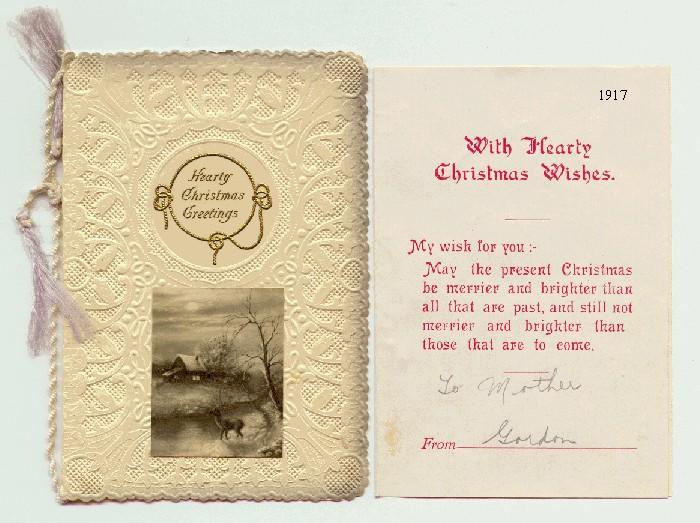 Hearty
Christmas
Greetings
1917
With Hearty
Christmas Wishes.
My wish for you :-
May the present Christmas
be merrier and brighter than
all that are past, and still not
merrier and brighter than
those that are to come.
To Mother
From Gordon